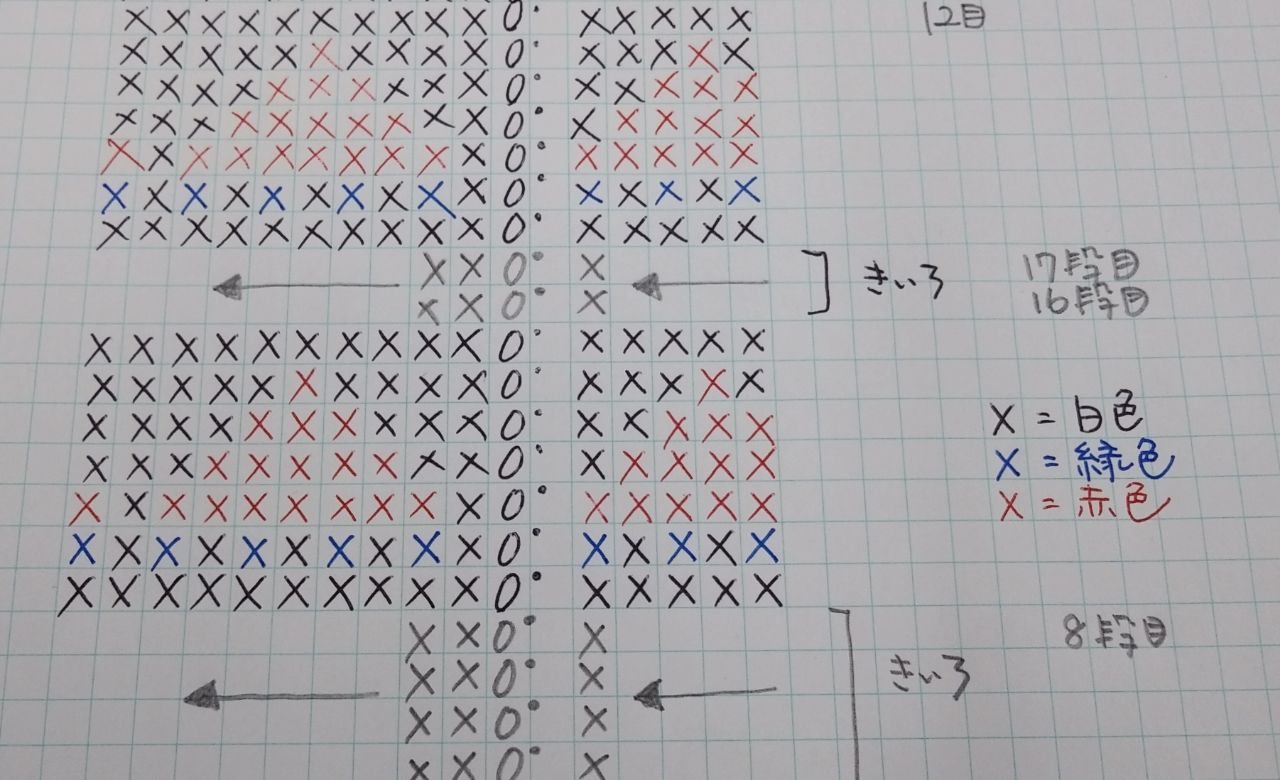 12目
きいろ 17段目
16段目
X = 白色
X = 緑色
X = 赤色
8段目
きいろ